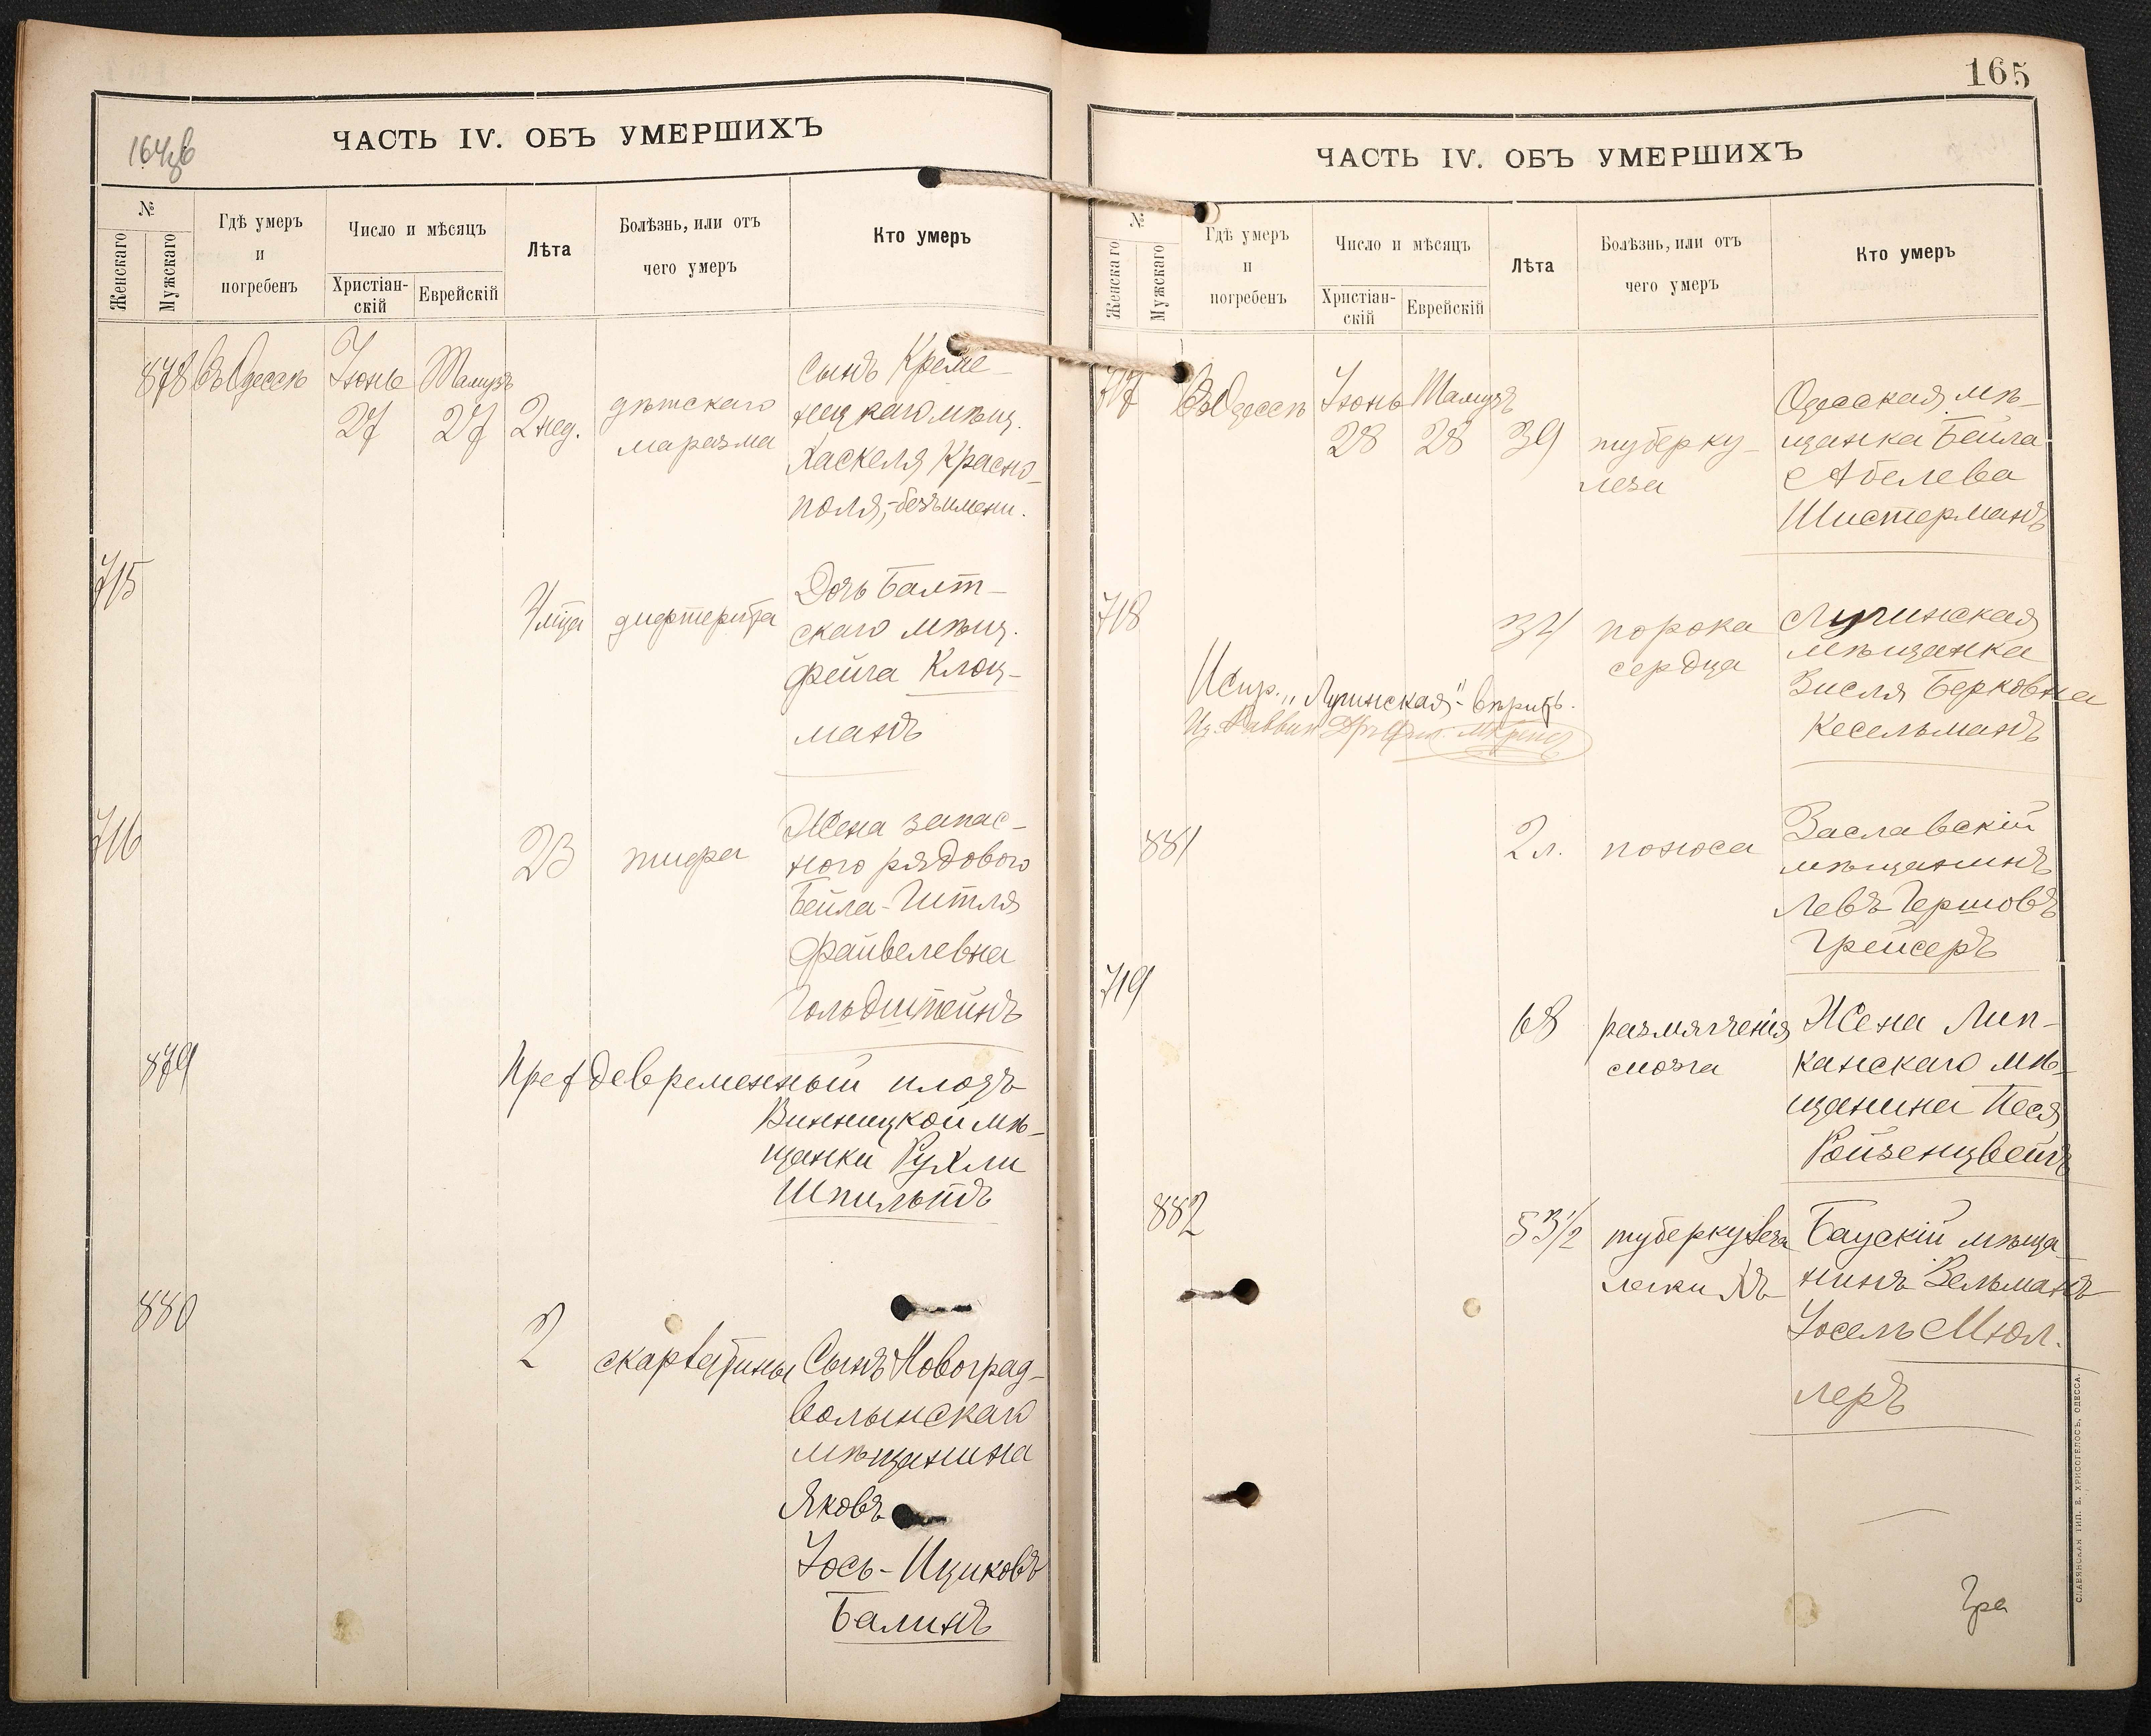 164об
ЧАСТЬ IV. ОБЪ УМЕРШИХЪ
№
Женскаго
Мужскаго
Гдѣ умеръ
и
погребенъ
Число и мѣсяцъ
Христіан-
скій
Еврейскій
Лѣта
Болѣзнь, или отъ
чего умеръ
Кто умеръ
878 въ Одессѣ Іюнь Тамузъ
27 27 2 нед.
дѣтскаго
маразма
Сынъ Креме-
нецкаго мѣщ.
Хаскеля Красно-
поля, - безъ имени.
715
4 мѣца дифтерита
Дочь Балт-
скаго мѣщ.
Фейга Клоц-
манъ
716
23 тифа
Жена запас-
ного рядового
Бейла-Гитля
Файвелевна
Гольдштейнъ
879
Преждевременный плодъ
Винницкой мѣ-
щанки Рухли
Шпильтъ
880
2 скарлатины
Сынъ Новоград-
волынскаго
мѣщанина
Яковъ
Іось-Ицковъ
Балинъ
165
ЧАСТЬ IV. ОБЪ УМЕРШИХЪ
№
Женскаго
Мужскаго
Гдѣ умеръ
и
погребенъ
Число и мѣсяцъ
Христіан-
скій
Еврейскій
Лѣта
Болѣзнь, или отъ
чего умеръ
Кто умеръ
717 Въ Одессѣ Іюнь Тамузъ
28 28 39
туберку-
леза
Одесская мѣ-
щанка Бейла
Абелева
Шистерманъ
718
34 порока
сердца
Лугинская
мѣщанка
Зисля Берковна
Кесельманъ
Испр. „Лугинская"- вѣрить.
881
2 л. поноса
Заславскій
мѣщанинъ
Левъ Гершовъ
Грейсеръ
719
68 размягченія
мозга
Жена Лип-
канскаго мѣ-
щанина Песя
Ройзенцвейгъ
882
53 1/2 туберкулеза
легкихъ
Баускій мѣща-
нинъ Зельманъ
Іосель Мюл.
леръ
Гра
СЛАВЯНСКАЯ ТИП. Е. ХРИСОГЕЛОСЪ, ОДЕССА.